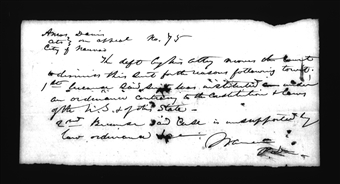 Amos Davis
ats on appeal No. 75
City of Kansas
The deft by his atty moves the court
to dismiss this suit for the reasons following towit.
1st because said suit was instituted under
an ordinance contrary to the Constitution & Laws
of the U.S. & of the State
2nd Because said Case is unsupported by
law ordinance